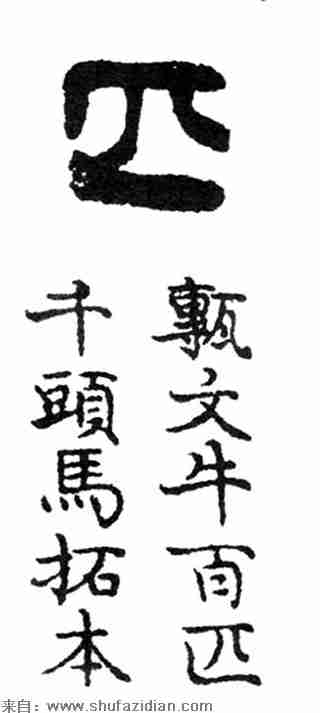 匹
甎文牛百匹
千頭馬拓本
来自：www.shufazidian.com